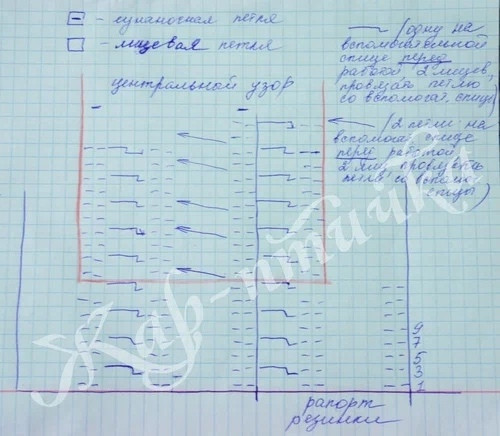 - изнаночная петля
- лицевая петля
центральной узор
- (одну на
вспомогательной
спице перед
работой 2 лицев,
провязать петлю
со вспомогат, спицы)
(2 петли на
вспомог спице
перед работой
2 лиц провязать
спицы)
Жар-птичка
9
7
5
3
1
рапорт
резинки